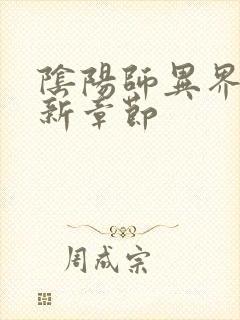 陰陽師異界
新章節
周成宗